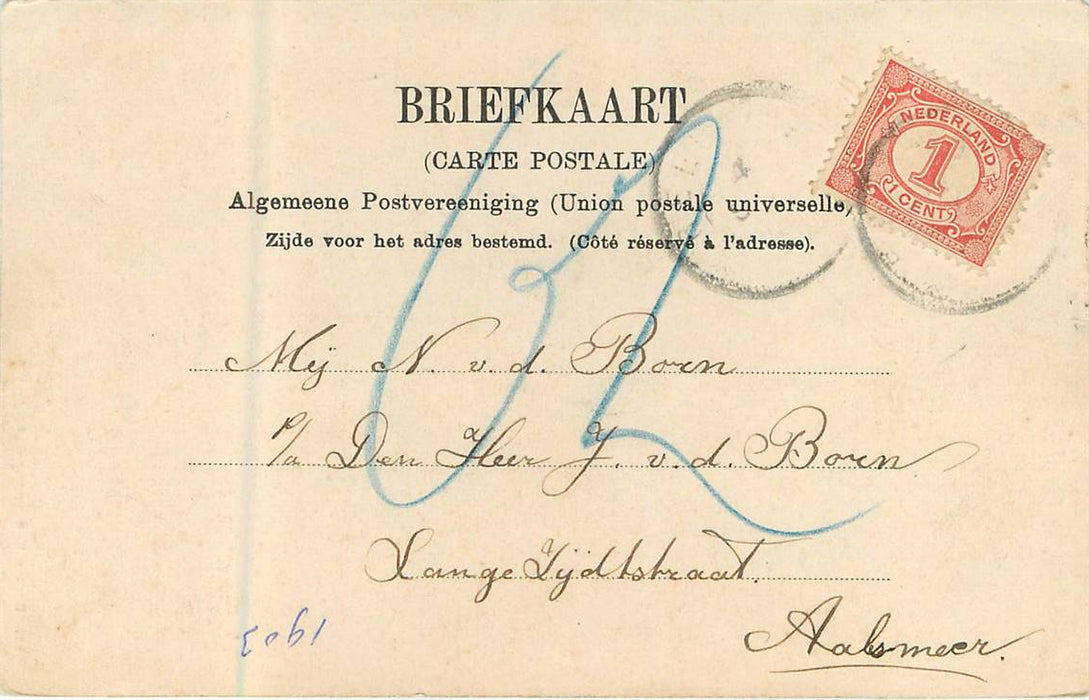 BRIEFKAART
(CARTE POSTALE)
Algemeene Postvereeniging (Union postale universelle)
Zijde voor het adres bestemd. (Côté réservé à l'adresse).
NEDERLAND
1
1 CENT
62
Mej N. v. d. Born
p/a Den Heer J. v. d. Born
Lange Zijdtstraat.
Aalsmeer.
1903